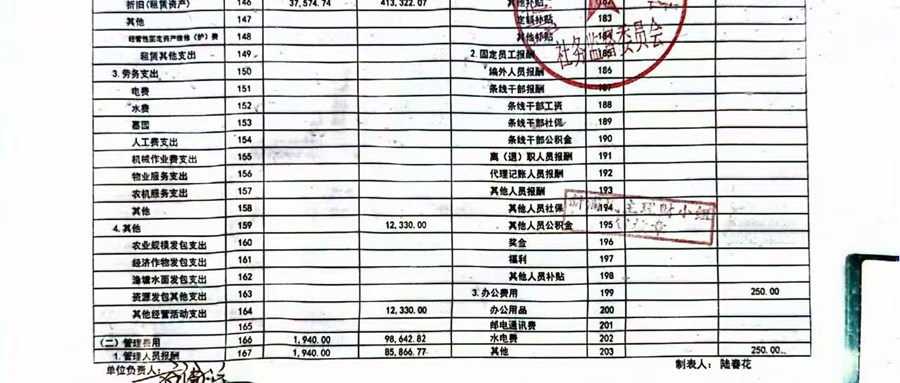 折旧(租赁资产) 146 37,574.74 413,322.07 其他补贴
其他 147 定额补贴 183
经营性固定资产维修（护）费 148 其他补贴 184
租赁其他支出 149 2.固定员工报酬 185
3.劳务支出 150 编外人员报酬 186
电费 151 条线干部报酬 187
水费 152 条线干部工资 188
墓园 153 条线干部社保 189
人工费支出 154 条线干部公积金 190
机械作业费支出 155 离（退）职人员报酬 191
物业服务支出 156 代理记账人员报酬 192
农机服务支出 157 其他人员报酬 193
其他 158 其他人员社保 194
4.其他 159 12,330.00 其他人员公积金 195
农业规模发包支出 160 奖金 196
经济作物发包支出 161 福利 197
渔塘水面发包支出 162 其他人员补贴 198
资源发包其他支出 163 3.办公费用 199 250.00
其他经营活动支出 164 12,330.00 办公用品 200
165 邮电通讯费 201
(二)管理费用 166 1,940.00 98,642.82 水电费 202
1.管理人员报酬 167 1,940.00 85,866.77 其他 203 250.00
单位负责人： 制表人： 陆春花
社务监督委员会
理财小组